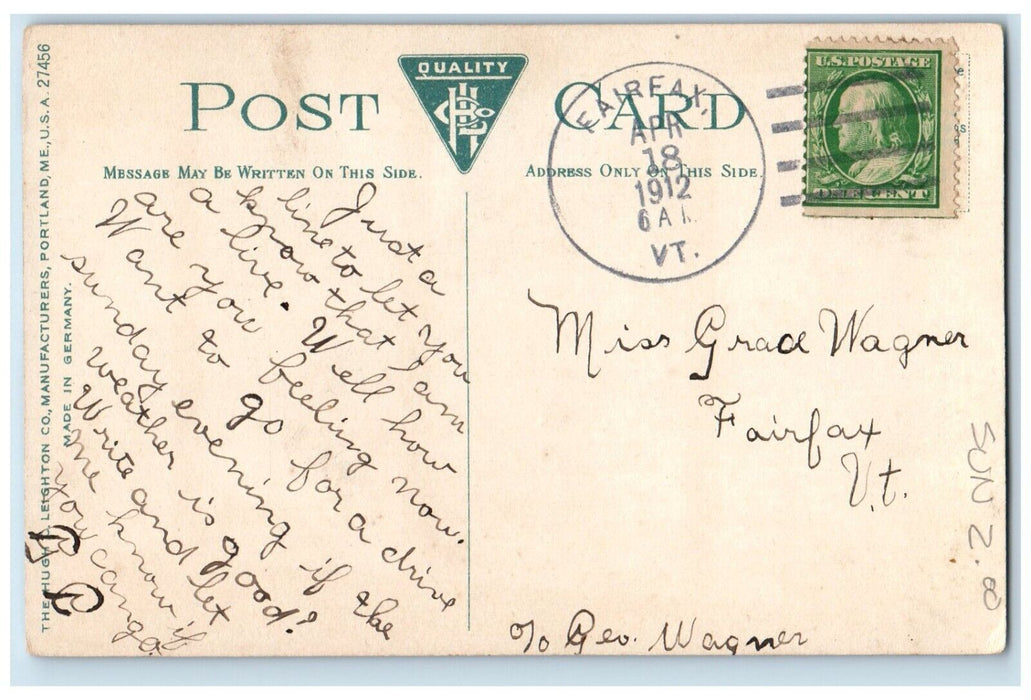 POST CARD
QUALITY
MESSAGE MAY BE WRITTEN ON THIS SIDE.
ADDRESS ONLY ON THIS SIDE.
THE HUGH C. LEIGHTON CO., MANUFACTURERS, PORTLAND, ME., U.S.A. 27456
MADE IN GERMANY.
FAIRFAX,
APR
18
1912
6 A M
VT.
U.S. POSTAGE
ONE CENT
Just a
line to let you
know that I am
a live. Well how
are you feeling now.
Want to go for a drive
sunday evening if the
weather is good?
Write and let
me know if
you can go.
Miss Grace Wagner
Fairfax
V.t.
c/o Geo. Wagner
SUN 2.8